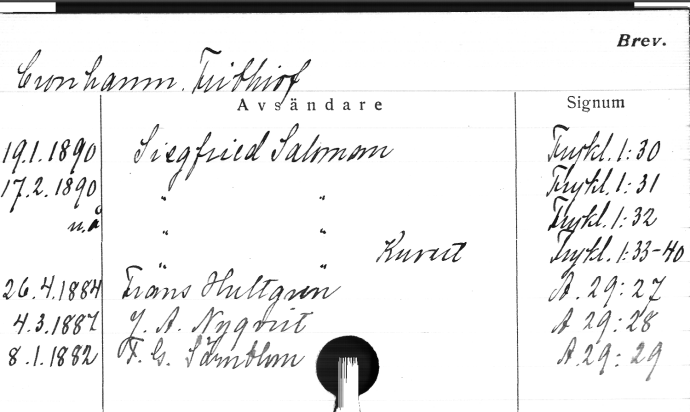 Brev.
Cronhamn. Frithiof
Avsändare Signum
19.1.1890 Siegfried Salomon Frykl. 1:30
17.2.1890 " " Frykl. 1:31
u.å " " Frykl. 1:32
" Kuvert Frykl. 1:33-40
26.4.1884 Frans Hultgren A. 29:27
4.3.1887 J. A. Nyqvist A 29:28
8.1.1882 F. G. A. 29:29